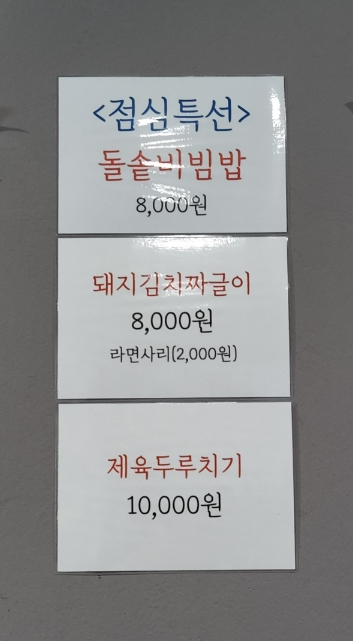 <점심특선>
돌솥비빔밥
8,000원
돼지김치짜글이
8,000원
라면사리(2,000원)
제육두루치기
10,000원